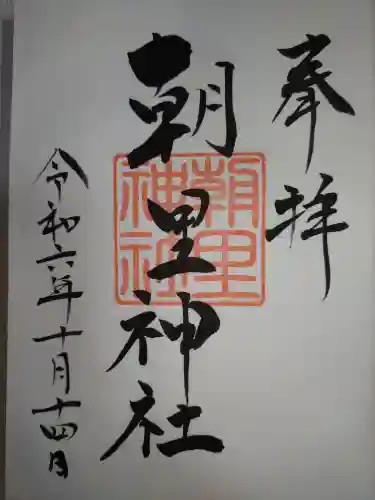 奉拝
朝里神社
朝里
神社
令和六年十月十四日